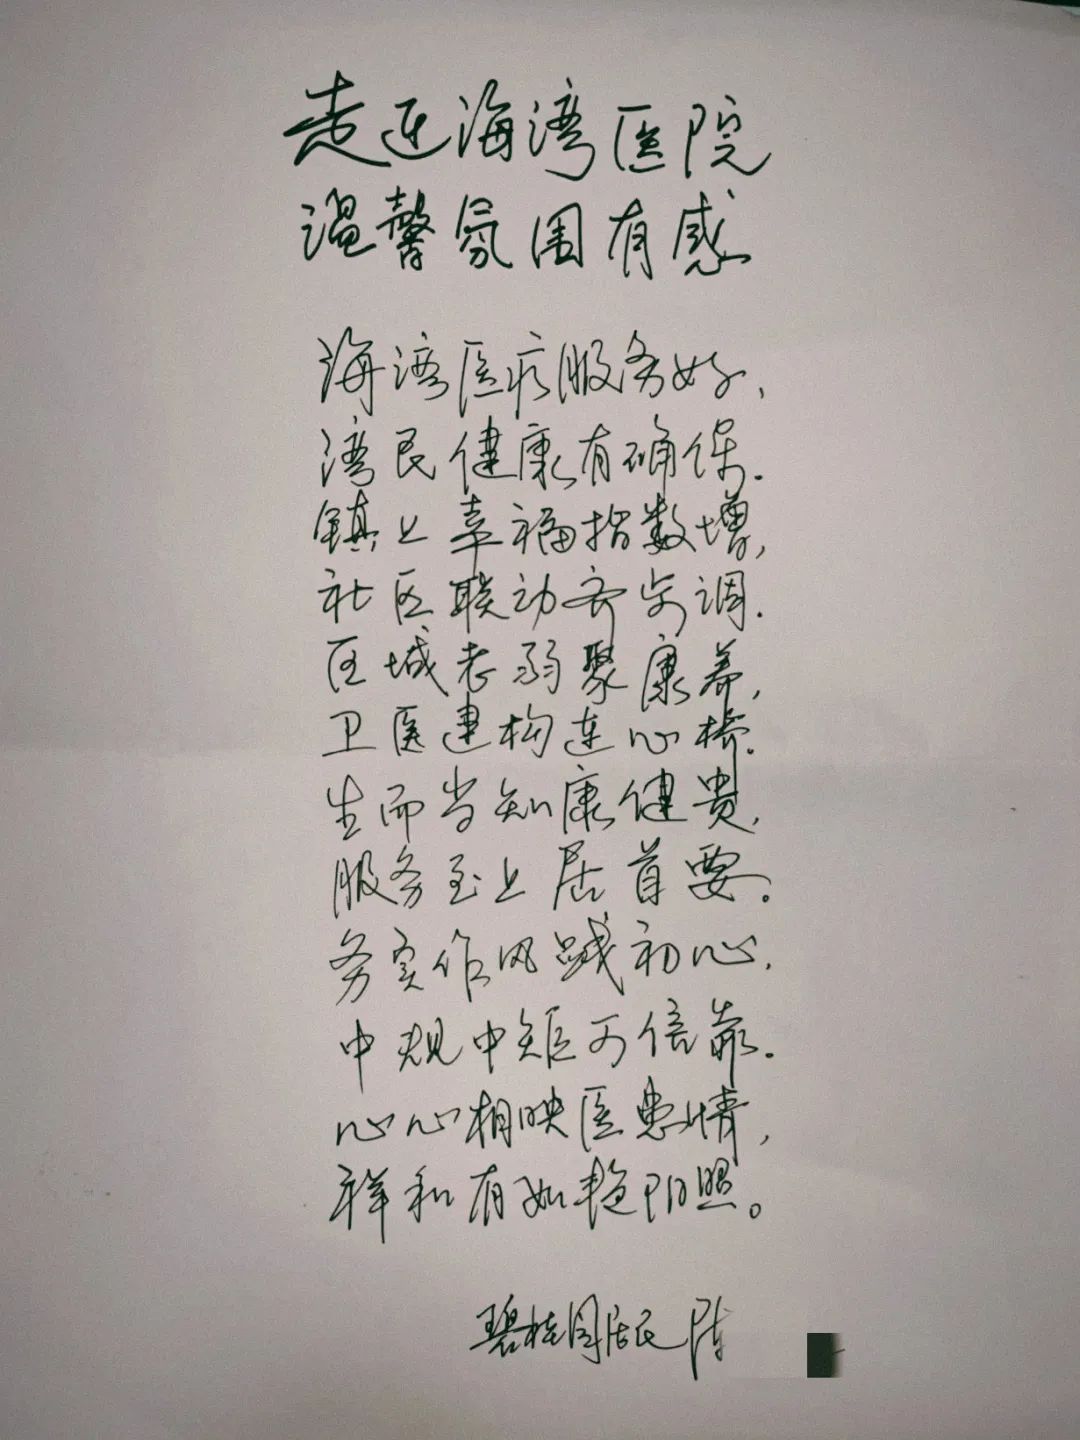 走近海湾医院
温馨氛围有感
海湾医疗服务好,
湾民健康有确保.
镇上幸福指数增,
社区联动齐步调.
区域老弱聚康养,
卫医建构连心桥.
生而当知康健贵,
服务至上居首要。
务实作风践初心,
中规中矩可信靠.
心心相映医患情,
祥和有如艳阳照。
碧桂园居民 陈